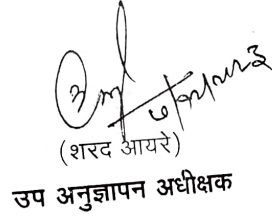 (शरद आयरे)
उप अनुज्ञापन अधीक्षक